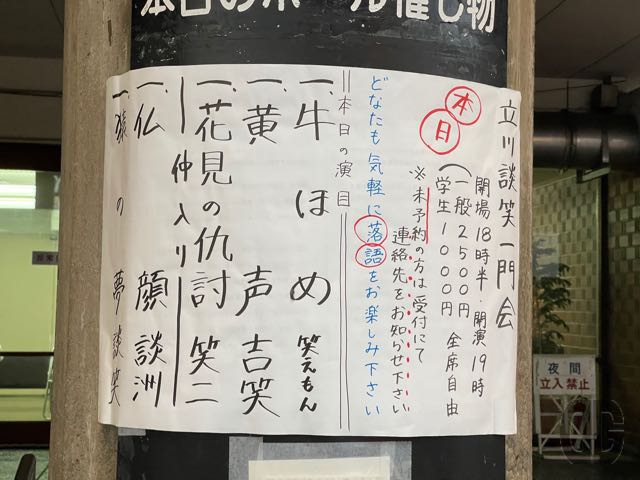 本日のホール催し物
立川談笑一門会
本日
開場18時半・開演19時
一般2500円
学生1000円 全席自由
※未予約の方は受付にて
連絡先をお知らせ下さい
どなたも気軽に落語をお楽しみ下さい
本日の演目
一、牛ほめ 笑えもん
一、黄声 吉笑
一、花見の仇討 笑二
仲入り
一、仏顔 談洲
一、猿の夢 談笑
夜間
立入禁止